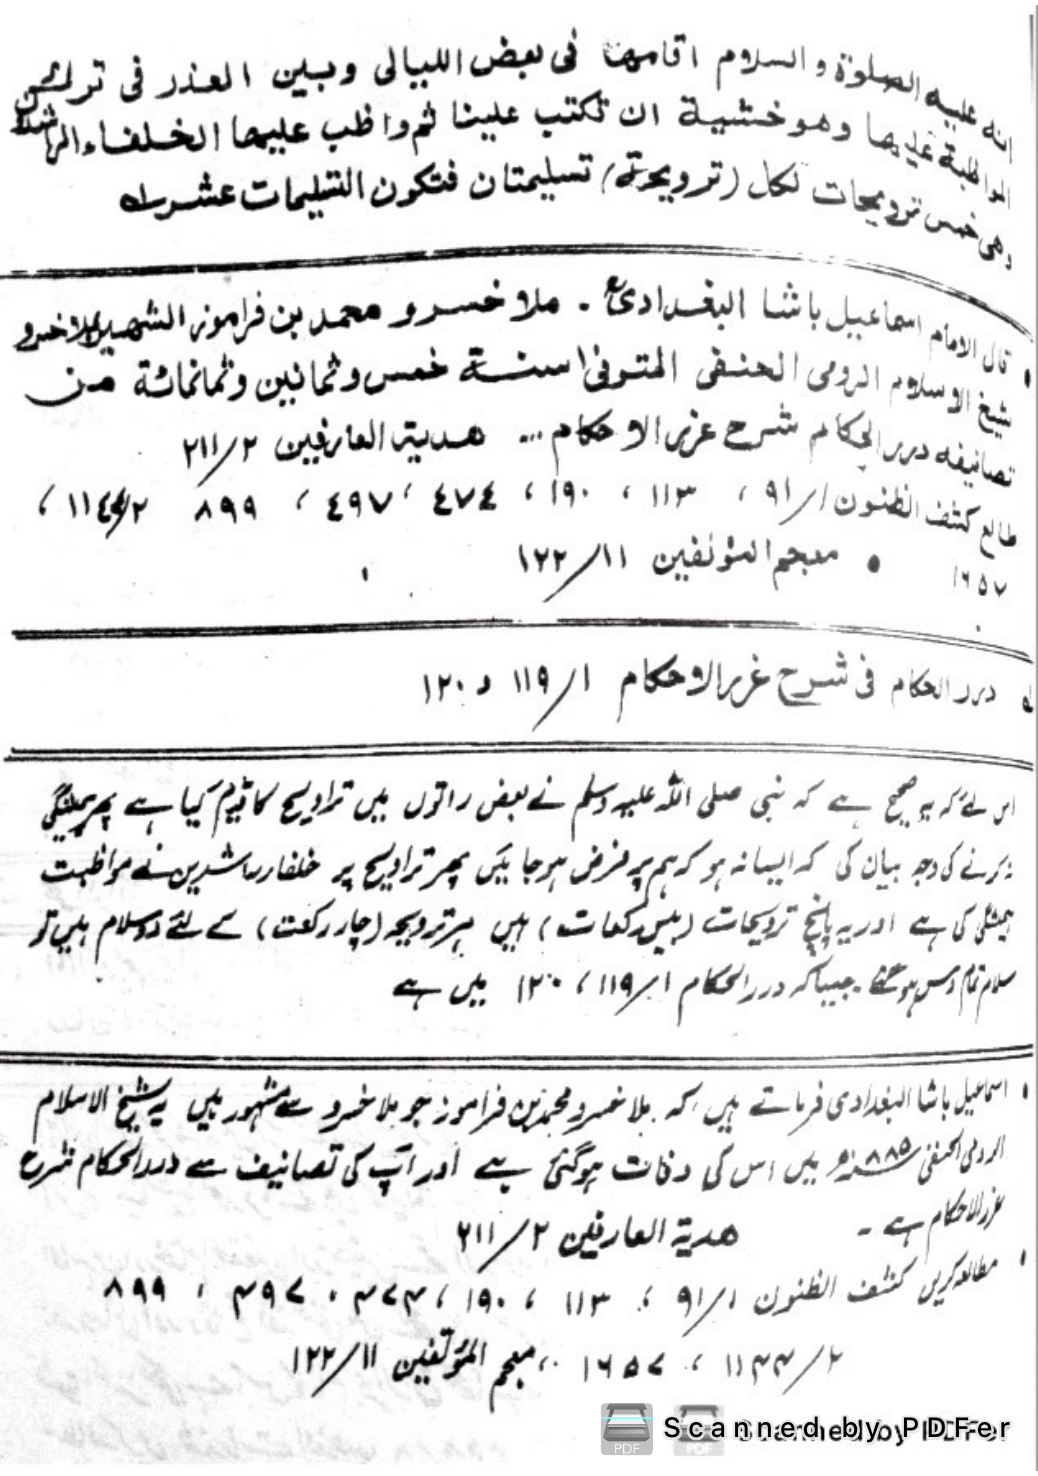 انه عليه الصلوة والسلام اقامها فى بعض الليالى وبين العذر فى ترك
المواظبة عليها وهو خشية ان تكتب علينا ثم واظب عليها الخلفاء الراشدون
وهى خمس ترويحات لكل (ترويحة) تسليمتان فتكون التسليمات عشرا له
• قال الامام اسماعيل باشا البغدادى . ملا خسرو محمد بن فراموز الشهير بملا خسرو
شيخ الاسلام الرومى الحنفى المتوفى سنة خمس وثمانين وثمانمائة من
تصانيفه درر الحكام شرح غرر الاحكام ... هدية العارفين ٢/٢١١
طالع كشف الظنون ١/٩١ ، ١١٣ ، ١٩٠ ، ٤٧٤ ، ٤٩٧ ، ٨٩٩ ٢/١١٤٤ ،
١٦٥٧ • معجم المؤلفين ١١/١٢٢
له درر الحكام فى شرح غرر الاحكام ١/١١٩ و ١٢٠
اس لئے کہ یہ صحیح ہے کہ نبی صلی اللہ علیہ وسلم نے بعض راتوں میں تراویح کا قیام کیا ہے پھر ہمیشگی
نہ کرنے کی وجہ بیان کی کہ ایسا نہ ہو کہ ہم پر فرض ہو جائیں پھر تراویح پر خلفاء راشدین نے مواظبت
ہمیشگی کی ہے اور یہ پانچ ترویحات (بیس رکعات) ہیں ہر ترویحہ (چار رکعت) کے لئے دو سلام ہیں تو
سلام تمام دس ہو گئے ۔ جیسا کہ درر الحکام ۱/۱۱۹ ، ۱۲۰ میں ہے
• اسماعیل باشا البغدادی فرماتے ہیں کہ ملا خسرو محمد بن فراموز جو ملا خسرو سے مشہور ہیں یہ شیخ الاسلام
الرومی الحنفی سنہ ۸۸۵ھ میں اس کی وفات ہو گئی ہے اور آپ کی تصانیف سے درر الحکام شرح
غرر الاحکام ہے ۔ هدية العارفين ٢/٢١١
• مطالعہ کریں کشف الظنون ۱/۹۱ ، ۱۱۳ ، ۱۹۰ ، ۴۷۴ ، ۴۹۷ ، ۸۹۹
۲/۱۱۴۴ ، ۱۶۵۷ ،، معجم المؤلفين ١١/١٢٢
Scanned by PDFer